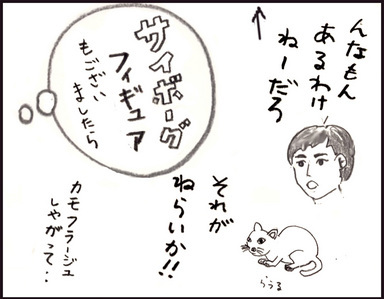 んなもん
あるわけ
ねーだろ
サイボーグ
フィギュア
もござい
ましたら
それが
ねらいか!!
カモフラージュ
しやがって・・
らうる